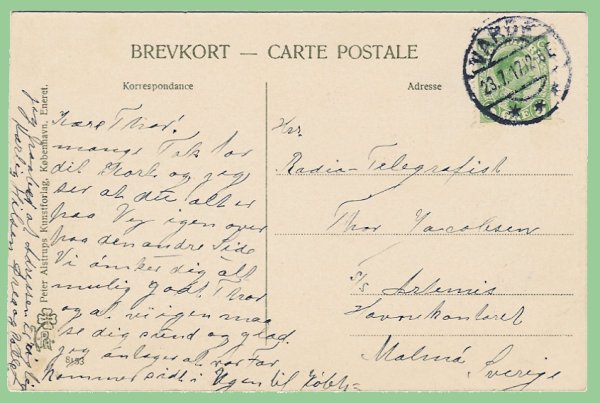 BREVKORT — CARTE POSTALE
Korrespondance
Adresse
VARDE
23.7.17.12-3E
Kære Thor!
mange Tak for
dit Kort og jeg
ser at du alt er
paa Vej igen over
paa den andre Side
Vi ønsker dig alt
mulig godt Thor
og at vi igen maa
se dig sund og glad.
jeg antager at
kommer sidst i Ugen til
Hr.
Radio-Telegrafist
Thor Jacobsen
S/S Artemis
Havnekontoret
Malmö
Sverige
Peter Alstrups Kunstforlag, København. Eneret.
8153
jeg at adressen er
Kærlig Hilsen